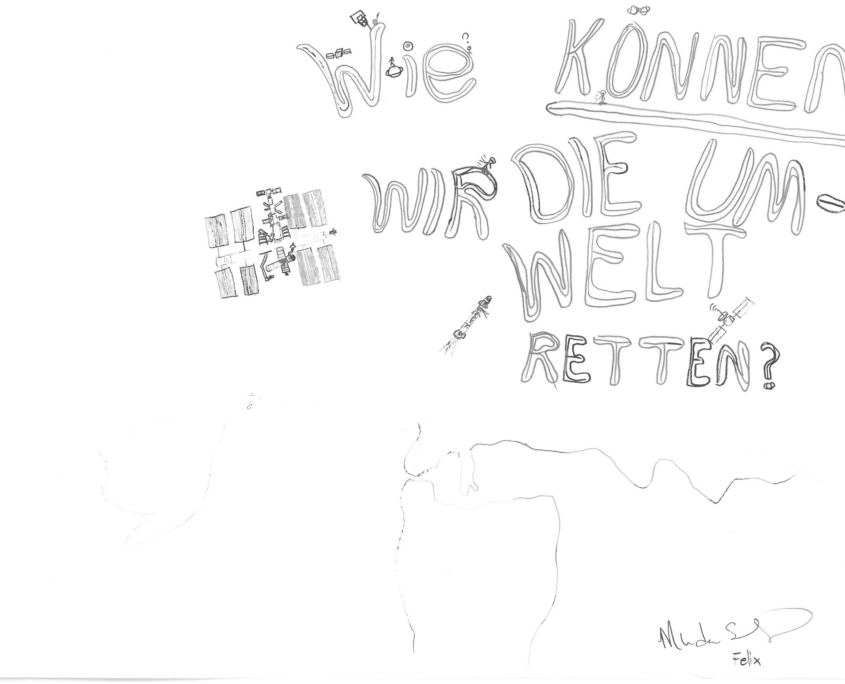 Wie KÖNNEN
WIR DIE UM-
WELT
RETTEN?
Felix